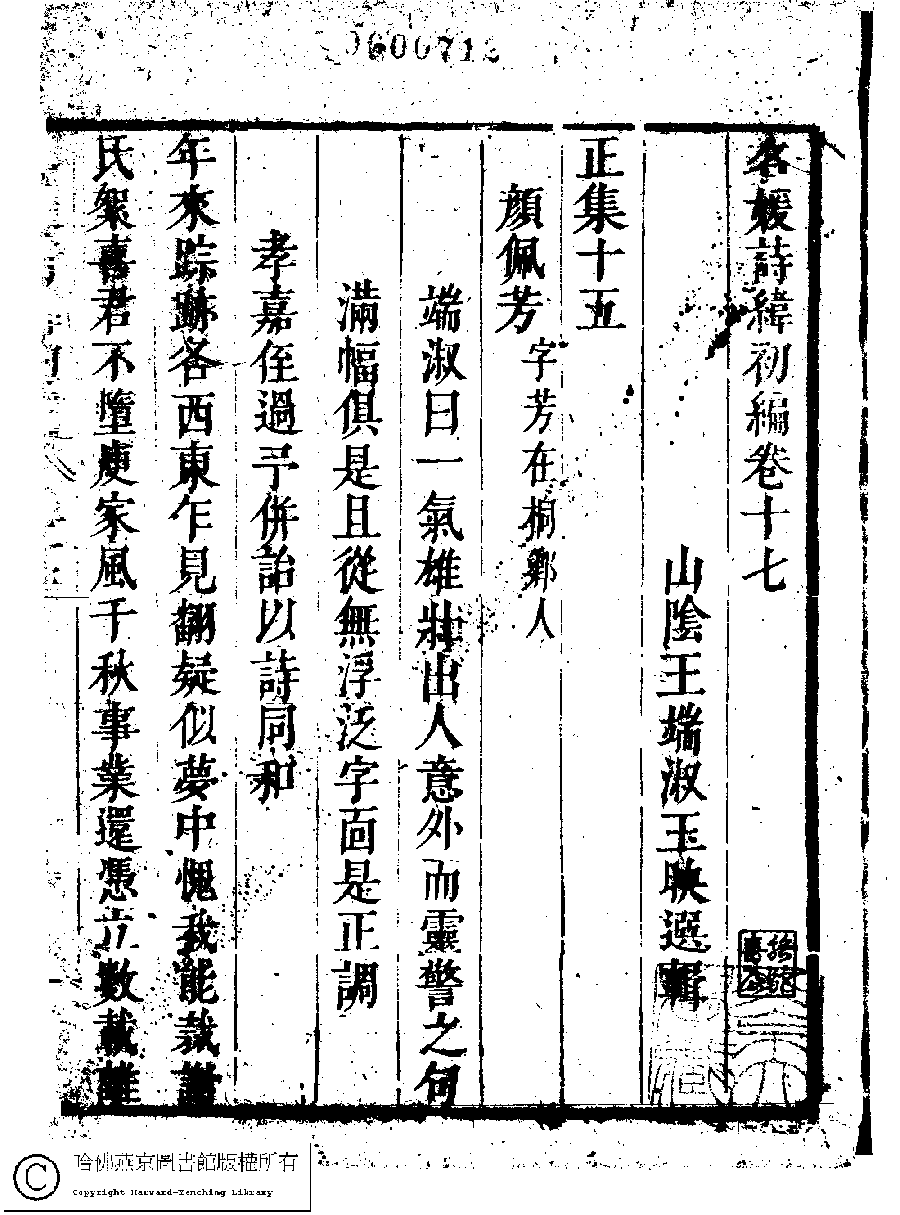 名媛詩緯初編卷十七
山陰王端淑玉映選輯
正集十五
顏佩芳字芳在桐鄉人
端淑曰一氣雄壯出人意外而靈警之句
滿幅俱是且從無浮泛字面是正調
孝嘉侄過予併詒以詩同和
年來踪跡各西東乍見翻疑似夢中愧我能裁謝
氏絮喜君不墮庾家風千秋事業還憑立數載離
哈佛燕京圖書館版權所有
Copyright Harvard-Yenching Library